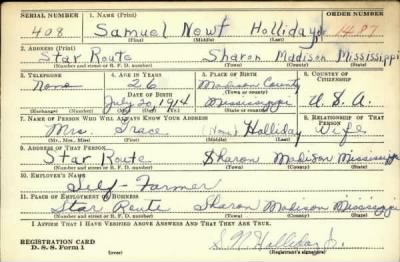 SERIAL NUMBER 1. NAME (Print) ORDER NUMBER
408 Samuel Newt Holliday Jr 1487
(First) (Middle) (Last)
2. ADDRESS (Print)
Star Route Sharon Madison Mississippi
(Number and street or R. F. D. number) (Town) (County) (State)
3. TELEPHONE 4. AGE IN YEARS 5. PLACE OF BIRTH 6. COUNTRY OF CITIZENSHIP
None 26 Madison County
DATE OF BIRTH (Town or county)
July 20, 1914 Mississippi U.S.A.
(Exchange) (Number) (Mo.) (Day) (Yr.) (State or country)
7. NAME OF PERSON WHO WILL ALWAYS KNOW YOUR ADDRESS 8. RELATIONSHIP OF THAT PERSON
Mrs. Grace (None) Holliday Wife
(Mr., Mrs., Miss) (First) (Middle) (Last)
9. ADDRESS OF THAT PERSON
Star Route Sharon Madison Mississippi
(Number and street or R. F. D. number) (Town) (County) (State)
10. EMPLOYER'S NAME
Self-Farmer
11. PLACE OF EMPLOYMENT OR BUSINESS
Star Route Sharon Madison Mississippi
(Number and street or R. F. D. number) (Town) (County) (State)
I AFFIRM THAT I HAVE VERIFIED ABOVE ANSWERS AND THAT THEY ARE TRUE.
REGISTRATION CARD
D. S. S. Form 1 (over) S. N. Holliday Jr.
(Registrant's signature)